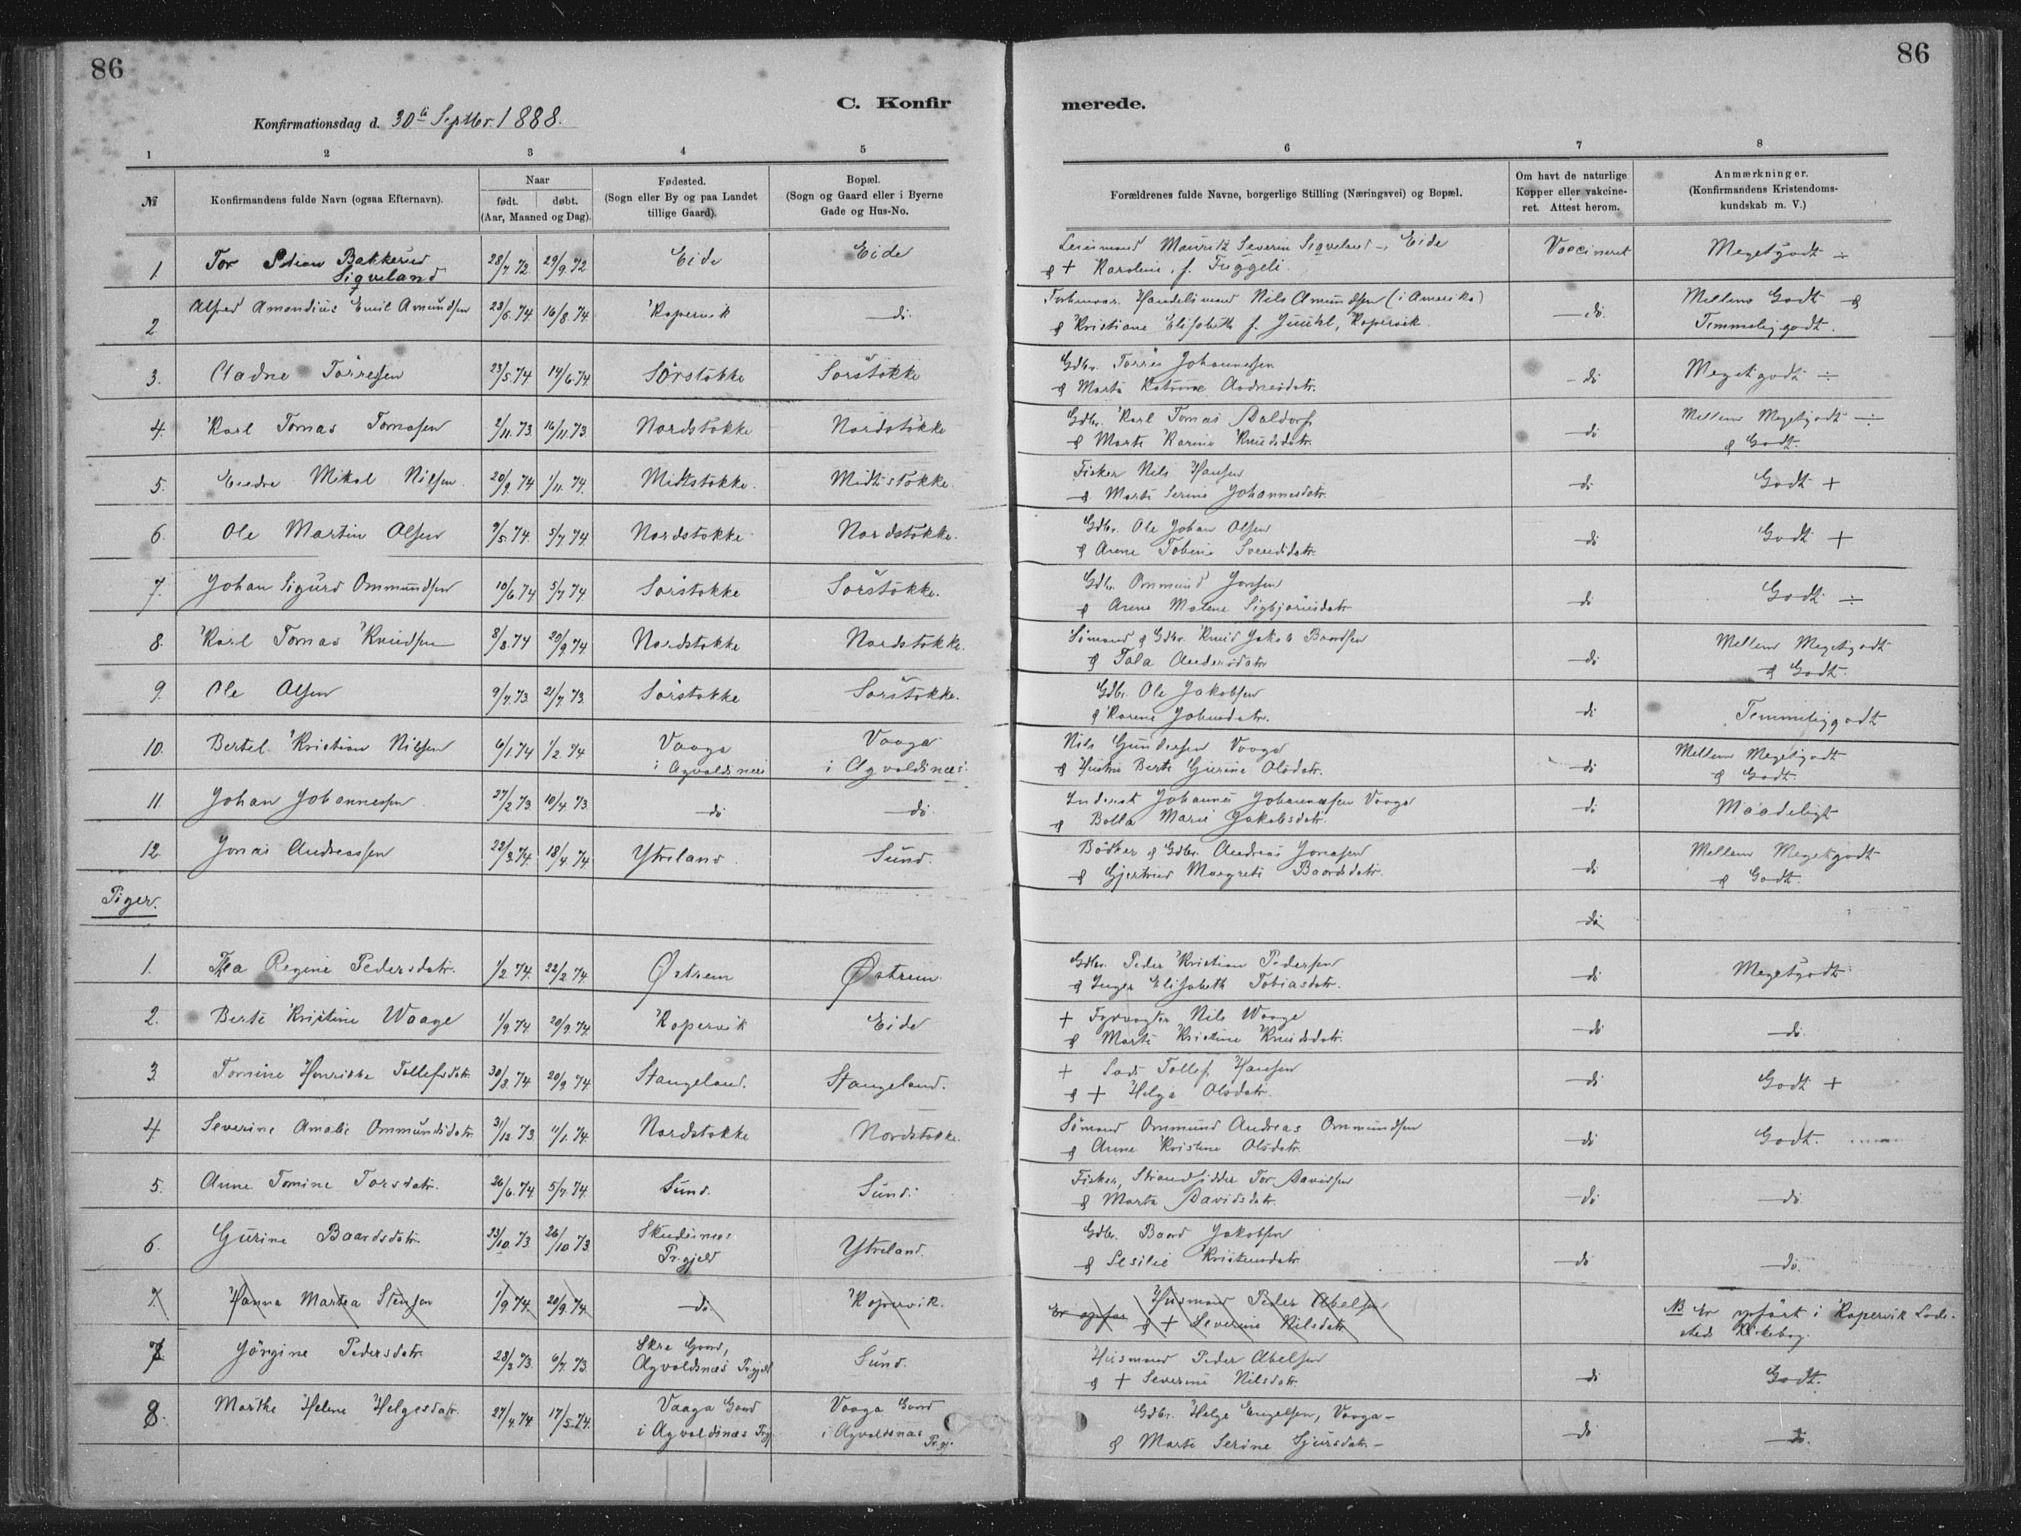 86
86
C. Konfir
merede.
Konfirmationsdag d. 30te Septbr. 1888.
1 2 3 4 5 6 7 8
№ Konfirmandens fulde Navn (ogsaa Efternavn). Naar født. døbt. (Aar, Maaned og Dag). Fødested. (Sogn eller By og paa Landet tillige Gaard). Bopæl. (Sogn og Gaard eller i Byerne Gade og Hus-No. Forældrenes fulde Navne, borgerlige Stilling (Næringsvei) og Bopæl. Om havt de naturlige Kopper eller vakcineret. Attest herom. Anmærkninger. (Konfirmandens Kristendomskundskab m. V.)
1 Tor Sigveland 28/7 72 29/9 72 Eide Eide Mauritz Severin Sigveland - Eide Vaccineret Megetgodt ÷
& + Karoline, f. Tuggeli.
2 Alfred Amandius Emil Amundsen 23/6 74 16/8 74 Kopervik do. Handelsmand Nils Amundsen (i Amerika) do. Mellem Godt &
& Kristiane Elisabeth f. Juuhl, Kopervik. Temmeliggodt.
3. Aadne Törresen 23/5 74 14/6 74 Sörstokke Sörstokke Gdbr. Törres Johannessen do Megetgodt ÷
& Marta Katrine Aadnesdatr.
4. Karl Tomas Tomasen 2/11 73. 16/11 73. Nordstokke Nordstokke Gdbr. Karl Tomas do Mellem Megetgodt ÷
& Marte Karine Knudsdatr. & Godt.
5. Endre Mikal Nilsen. 20/9 74 1/11 74. Midtstokke. Midtstokke. Fisker Nils Hansen do Godt +
& Marte Serine Johannesdatr.
6. Ole Martin Olsen 9/5 74 5/7 74 Nordstokke Nordstokke. Gdbr. Ole Johan Olsen do Godt +
& Anne Tobine Svendsdatr.
7. Johan Sigurd Ommundsen 10/6 74 5/7 74 Sörstokke Sörstokke. Gdbr. Ommund Jonsen do Godt ÷
& Anne Malene Sigbjörnsdatr
8. Karl Tomas Knudsen 8/8 74 20/9 74 Nordstokke Nordstokke. Sömand & Gdbr. Knud Jakob Baardsen do Mellem Megetgodt
& Tala Andersdatr & Godt.
9. Ole Olsen 9/7 73 21/7 73. Sörstokke Sörstokke. Gdbr. Ole Jakobsen do Temmeliggodt
& Karene Johnsdatr.
10. Bertel Kristian Nilsen 6/1 74 1/2 74 Vaaga Vaaga Nils Gundersen Vaaga do Mellem Megetgodt
i Agvaldsnes i Agvaldsnes. & Hustru Berte Gurine Olsdatr. & Godt.
11 Johan Johannessen 27/2 73. 10/4 73. do do. Inderst Johannes Johannesen Vaaga do Maadeligt
& Bolla Marie Jakobsdatr.
12. Jonas Andreassen 22/3 74. 18/4 74 Ytreland Sund. Bödker & Gdbr. Andreas Jonasen do Mellem Megetgodt
& Gjertrud Margrete Baardsdatr. & Godt.
Piger. do
1. Thea Regine Pedersdatr. 1/2 74. 22/2 74. Østrem Østrem Gdbr. Peder Kristian Pedersen do Megetgodt
& Inger Elisabeth Tobiasdatr.
2. Berte Kristine Waage 1/9 74 20/9 74. Kopervik Eide + Fyrvogter Nils Waage do do.
& Marte Kristine Knudsdatr.
3. Tomine Henrikke Tollefsdatr. 30/3 74 20/9 74 Stangeland. Stangeland. + Lods Tollef Hansen do Godt +
& + Helga Olsdatr.
4 Severine Amalie Ommundsdatr. 31/12 73 11/1 74. Nordstokke Nordstokke. Sömand Ommund Andreas Ommundsen do Godt.
& Anne Kristine Olsdatr.
5. Anne Tomine Torsdatr. 26/6 74 5/7 74 Sund. Sund. Fisker, Strandsidder Tor Davidsen do do
& Marta Davidsdatr.
6. Gurine Baardsdatr. 23/10 73. 26/10 73. Skudesnes Ytreland. Gdbr. Baard Jakobsen do do.
Pr.gjeld & Sesilie Kristensdatr.
7. Hanna Martea Stensen 1/9 74 20/9 74. do Kopervik. Husmand Peder Abelsen NB Er opfört i Kopervik Lade-
& + Severine Nilsdatr steds Kirkebog.
7 Jörgine Pedersdatr. 28/3 73. 6/7 73. Skre Gaard, Sund. Husmand Peder Abelsen do Godt.
Agvaldsnes Pr.gjeld & + Severine Nilsdatr.
8. Marthe Helene Helgesdatr. 27/4 74 17/5 74. Vaaga Gaard Vaaga Gaard Gdbr. Helge Engelsen, Vaaga - do do.
i Agvaldsnes Prgj. i Agvaldsnes Prgj. & Marte Serine Sjursdatr -